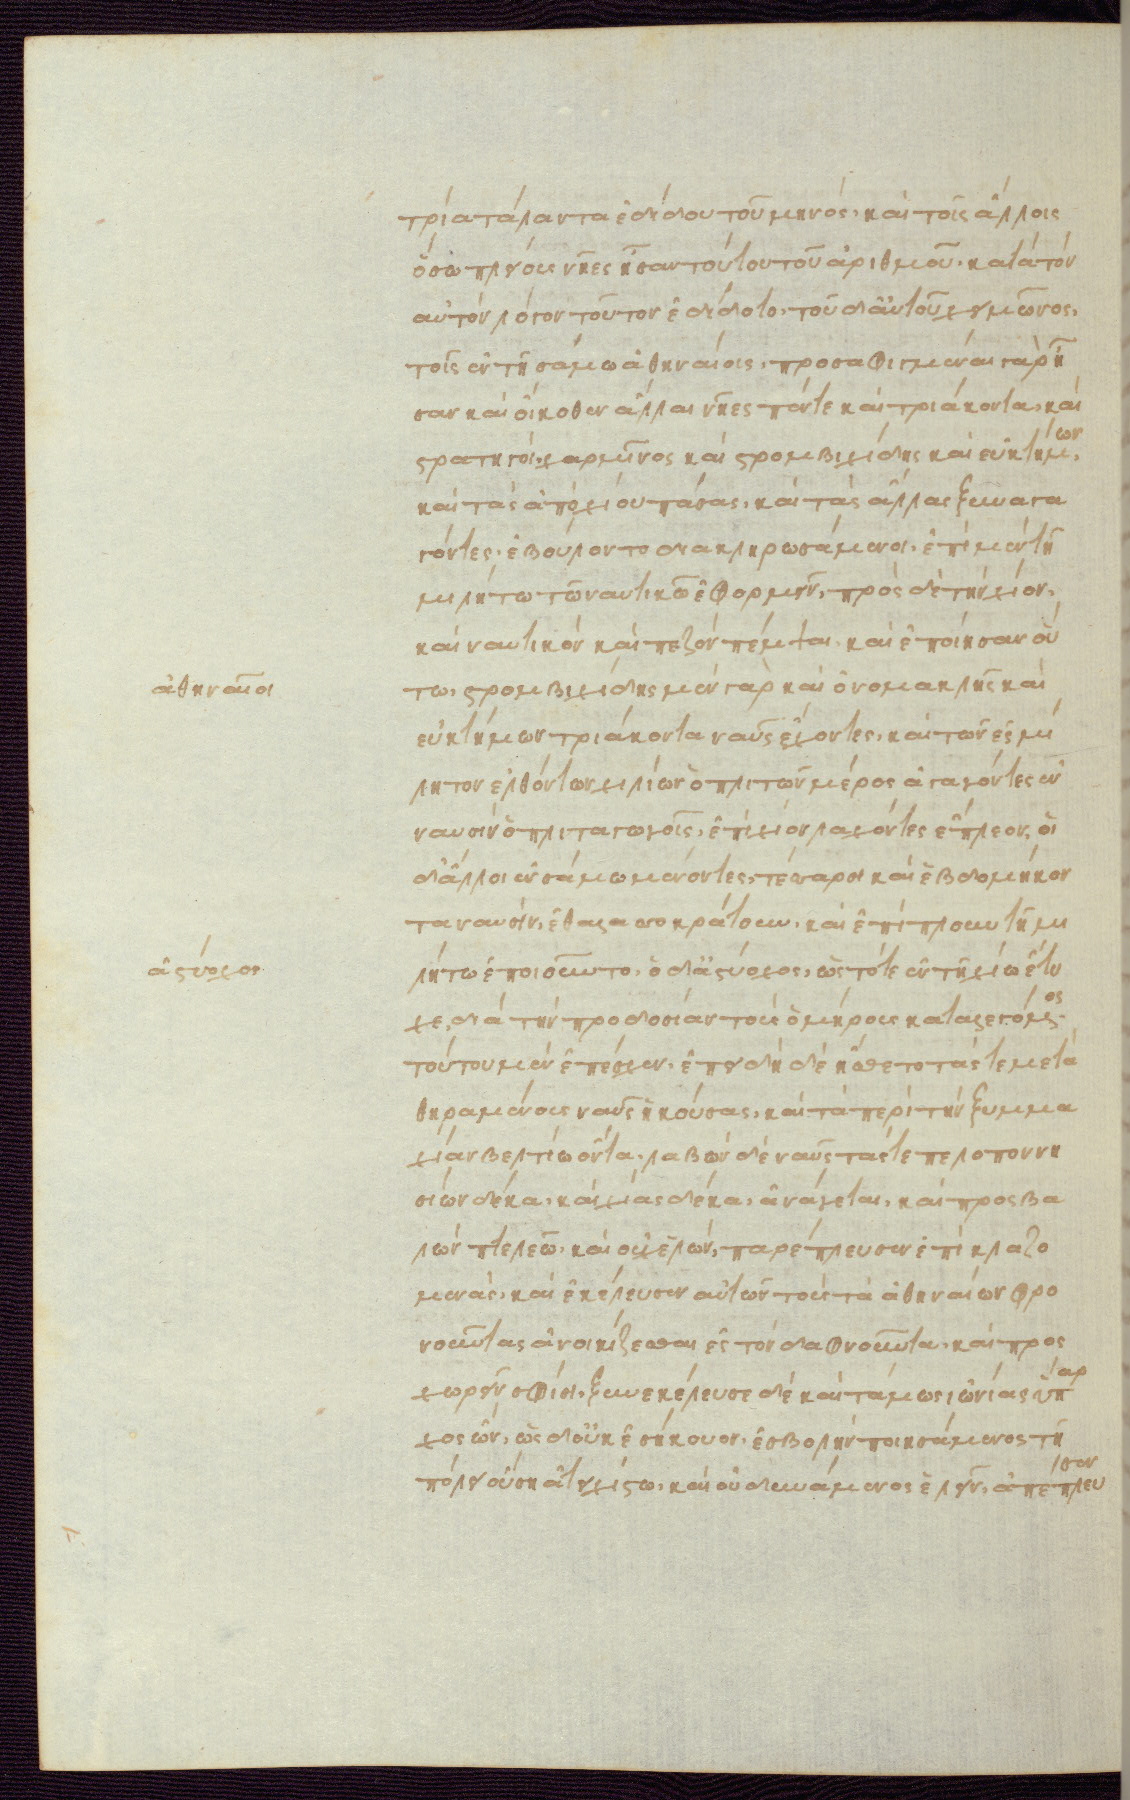 τρία τάλαντα ἐδίδου τοῦ μηνός, καὶ τοῖς ἄλλοις
ὅσω πλείους νῆες ἦσαν τούτου τοῦ ἀριθμοῦ, κατὰ τὸν
αὐτὸν λόγον τοῦτον ἐδίδοτο. τοῦ δ᾽ αὐτοῦ χειμῶνος,
τοῖς ἐν τῇ σάμω ἀθηναίοις, προσαφιγμέναι γὰρ ἦ
σαν καὶ οἴκοθεν ἄλλαι νῆες πέντε καὶ τριάκοντα, καὶ
στρατηγοὶ, χαρμῖνος καὶ στρομβιχίδης καὶ εὐκτήμων,
καὶ τὰς ἀπὸ χίου πάσας, καὶ τὰς ἄλλας ξυναγα
γόντες, ἐβούλοντο διακληρωσάμενοι, ἐπὶ μὲν τῇ
μιλήτω τῶ ναυτικῶ ἐφορμεῖν, πρὸς δὲ τὴν χίον,
καὶ ναυτικὸν καὶ πεζὸν πέμψαι. καὶ ἐποίησαν οὕ
ἀθηναῖοι
τω, στρομβιχίδης μὲν γὰρ καὶ ὀνομακλῆς καὶ
εὐκτήμων τριάκοντα ναῦς ἔχοντες, καὶ τῶν ἐς μί
λητον ἐλθόντων χιλίων ὁπλιτῶν μέρος ἀγαγόντες ἐν
ναυσὶν ὁπλιταγωγοῖς, ἐπὶ χίον λαχόντες ἔπλεον, οἱ
δ᾽ ἄλλοι ἐν σάμω μένοντες, τέσσαρσι καὶ ἑβδομήκον
τα ναυσὶν, ἐθαλασσοκράτουν, καὶ ἐπίπλουν τῇ μι
ἀστύοχος
λήτω ἐποιοῦντο, ὁ δ᾽ ἀστύοχος, ὡς τότε ἐν τῇ χίω ἔτυ
χε, διὰ τὴν προδοσίαν τοὺς ὁμήρους καταλεγόμενος.
τούτου μὲν ἐπέσχεν, ἐπειδὴ δὲ ἤσθετο τάς τε μετὰ
θηραμένους ναῦς ἡκούσας, καὶ τὰ περὶ τὴν ξυμμα
χίαν βελτίω ὄντα, λαβὼν δὲ ναῦς τάς τε πελοποννη
σίων δέκα, καὶ χίας δέκα, ἀνάγεται, καὶ προσβα
λὼν πτελεῶ, καὶ οὐχ ἑλὼν, παρέπλευσεν ἐπὶ κλαζο
μενὰς, καὶ ἐκέλευσεν αὐτῶν τοὺς τὰ ἀθηναίων φρο
νοῦντας ἀνοικίζεσθαι ἐς τὸν δαφνοῦντα, καὶ προς
χωρεῖν σφίσι, ξυνεκέλευσε δὲ καὶ τάμως ἰωνίας ὕπαρ
χος ὢν, ὡς δ᾽ οὐκ ἐσήκουον, ἐσβολὴν ποιησάμενος τῇ
πόλει οὔση ἀτειχίστω, καὶ οὐ δυνάμενος ἑλεῖν, ἀπέπλευσεν